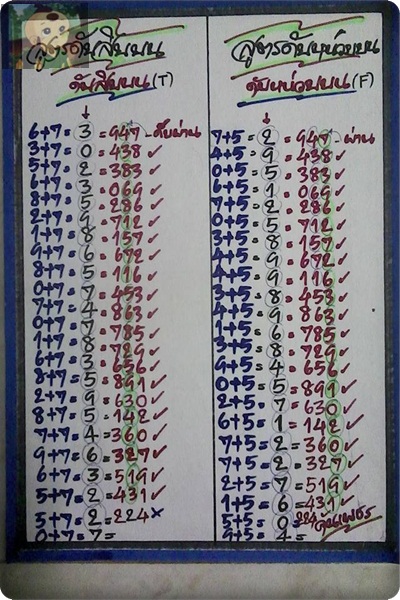 สูตรดับสิบบน
ดับสิบบน (T)
↓
6+7=3=947 - ดับผ่าน
3+7=0=438 ✓
5+7=2=383 ✓
6+7=3=069 ✓
8+7=5=286 ✓
2+7=9=712 ✓
1+7=8=157 ✓
9+7=6=672 ✓
8+7=5=116 ✓
0+7=7=453 ✓
7+7=4=863 ✓
0+7=7=785 ✓
1+7=8=729 ✓
6+7=3=656 ✓
8+7=5=891 ✓
2+7=9=630 ✓
8+7=5=142 ✓
7+7=4=360 ✓
9+7=6=327 ✓
6+7=3=519 ✓
5+7=2=431 ✓
5+7=2=224 ×
0+7=7=
สูตรดับหน่วยบน
ดับหน่วยบน (F)
↓
7+5=2=947 - ผ่าน
4+5=9=438 ✓
0+5=5=383 ✓
6+5=1=069 ✓
7+5=2=286 ✓
0+5=5=712 ✓
3+5=8=157 ✓
4+5=9=672 ✓
4+5=9=116 ✓
3+5=8=453 ✓
4+5=9=863 ✓
1+5=6=785 ✓
3+5=8=729 ✓
9+5=4=656 ✓
0+5=5=891 ✓
2+5=7=630 ✓
6+5=1=142 ✓
7+5=2=360 ✓
7+5=2=327 ✓
2+5=7=519 ✓
1+5=6=431 ✓
5+5=0=224
9+5=4=